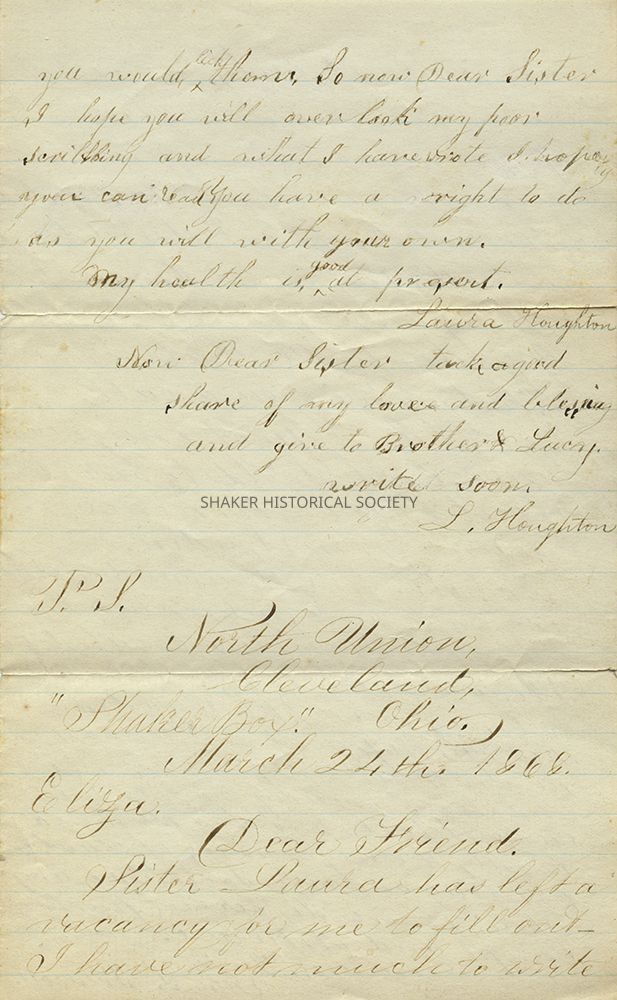 you would like them, So now Dear Sister
I hope you will over look my poor
scribbing and what I have wrote I hope
you can read You have a wright to do
as you will with your own.
My health is, good at present.
Laura Houghton
Now Dear Sister take a good
share of my love and blessing
and give to Brother & Lucy.
write soon
SHAKER HISTORICAL SOCIETY
L. Houghton
P. S.
North Union,
Cleveland,
"Shaker Box." Ohio.
March 24th. 1868.
Eliza.
Dear Friend.
Sister Laura has left a
vacancy for me to fill out-
I have not much to write